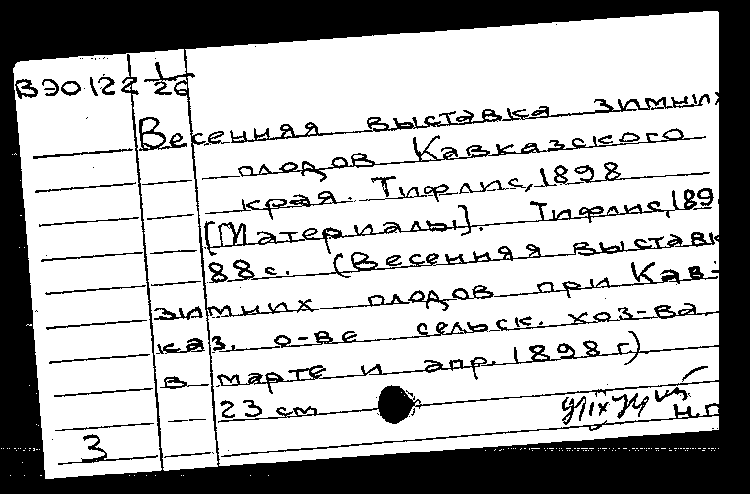 ВЭО122 1/26
Весенняя выставка зимних
плодов Кавказского
края. Тифлис, 1898
[Материалы]. Тифлис, 189
88 с. (Весенняя выставк
зимних плодов при Кав-
каз. о-ве сельск. хоз-ва
в марте и апр. 1898 г.).
23 см
Н.П
3